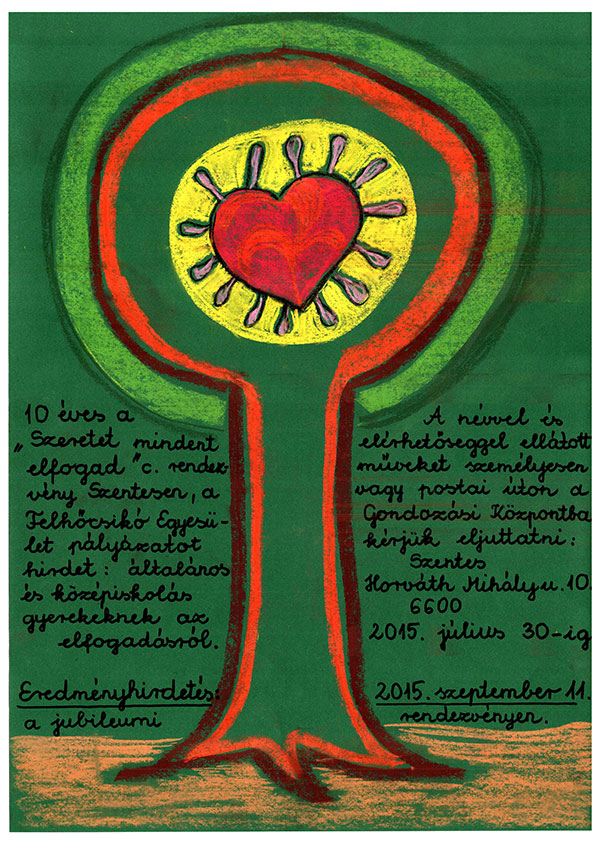 10 éves a
„Szeretet mindent
elfogad" c. rendez-
vény Szentesen, a
Felhőcsikó Egyesü-
let pályázatot
hirdet: általános
és középiskolás
gyerekeknek az
elfogadásról.
Eredményhirdetés:
a jubileumi
A névvel és
elérhetőséggel ellátott
műveket személyesen
vagy postai úton a
Gondozási Központba
kérjük eljuttatni:
Szentes
Horváth Mihály u. 10.
6600
2015. július 30-ig
2015. szeptember 11.
rendezvényen.